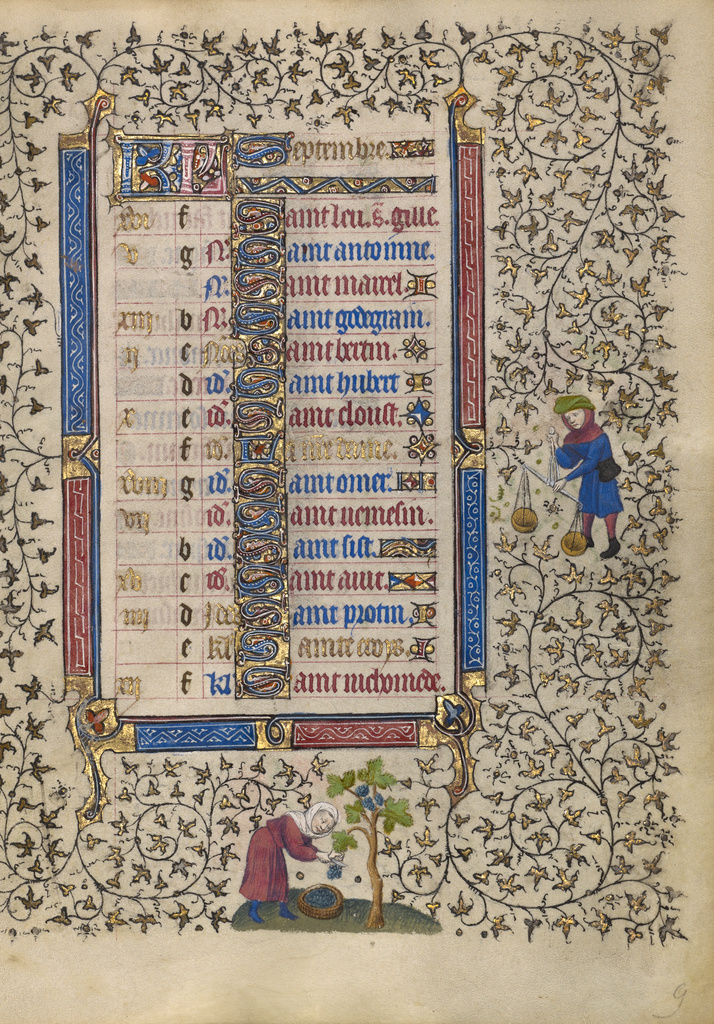 KL Septembre.
xvi f Saint leu. s. gille.
v g N. Saint antoinne.
N. Saint marcel.
xiii b N. Saint godegram.
ii c Saint bertin.
d id'. Saint hubert
x e id'. Saint cloust.
f id'. n're dame.
xviii g id'. Saint omer.
vii id'. Saint nemesin.
b id'. Saint sist.
xv c id'. Saint aiut.
iiii d Saint protin.
e kl' Sainte crois.
xii f kl' Saint nichomede.
9